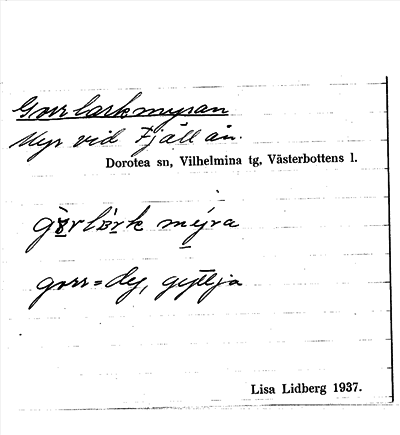 Gorrlarkmyran
Myr vid Fjällån.
Dorotea sn, Vilhelmina tg, Västerbottens l.
gòrlàrk mejra
gorr = dy, gyttja
Lisa Lidberg 1937.